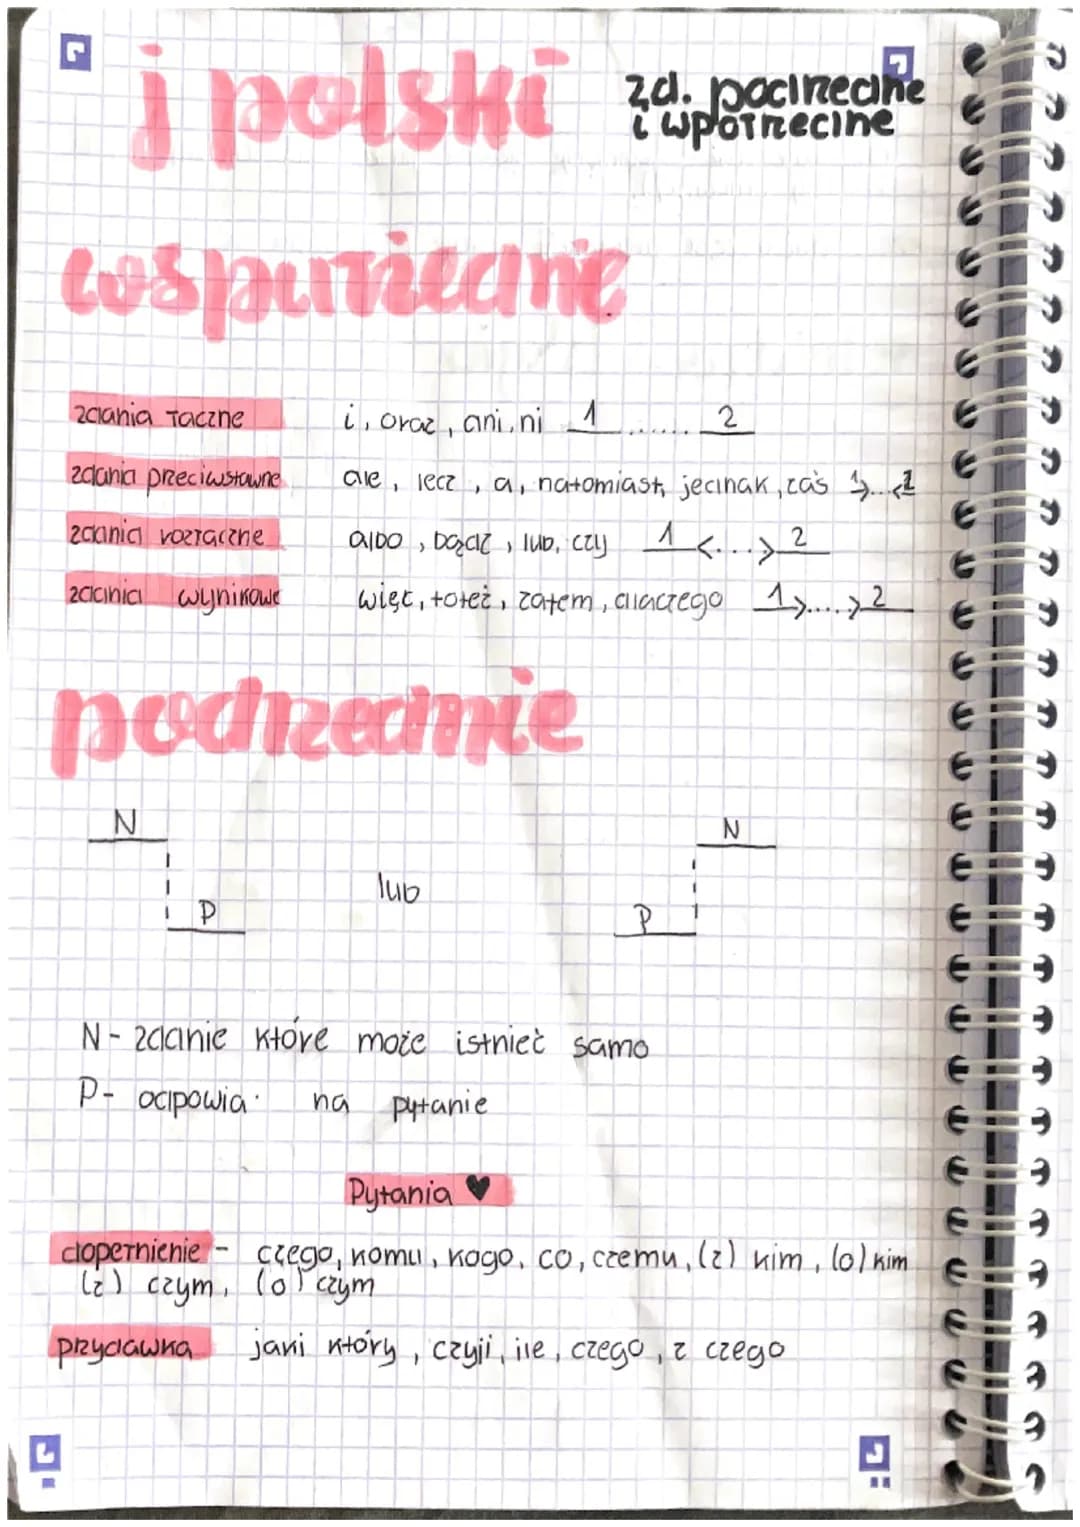 j polski
zd. podrzędne
i współrzędne
współrzędne
zdania łączne i, oraz, ani, ni 1 ...... 2
zdania przeciwstawne ale, lecz, a, natomiast, jednak, zaś 1>...<2
zdania rozłączne albo, bądź, lub, czy 1 <...> 2
zdania wynikowe więc, toteż, zatem, dlaczego 1>....>2
podrzędnie
N N
lub
P P
N- zdanie które może istnieć samo
P- odpowia na pytanie
Pytania ♥
dopełnienie - czego, komu, kogo, co, czemu, (z) kim, (o) kim
(z) czym, (o) czym
przydawka jaki który, czyji, ile, czego, z czego